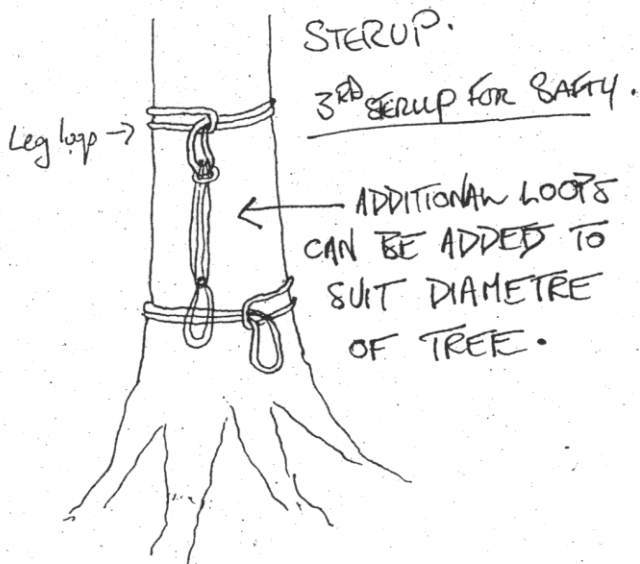 STERUP.
3RD STERUP FOR SAFTY.
Leg loop →
ADDITIONAL LOOPS
CAN BE ADDED TO
SUIT DIAMETRE
OF TREE.